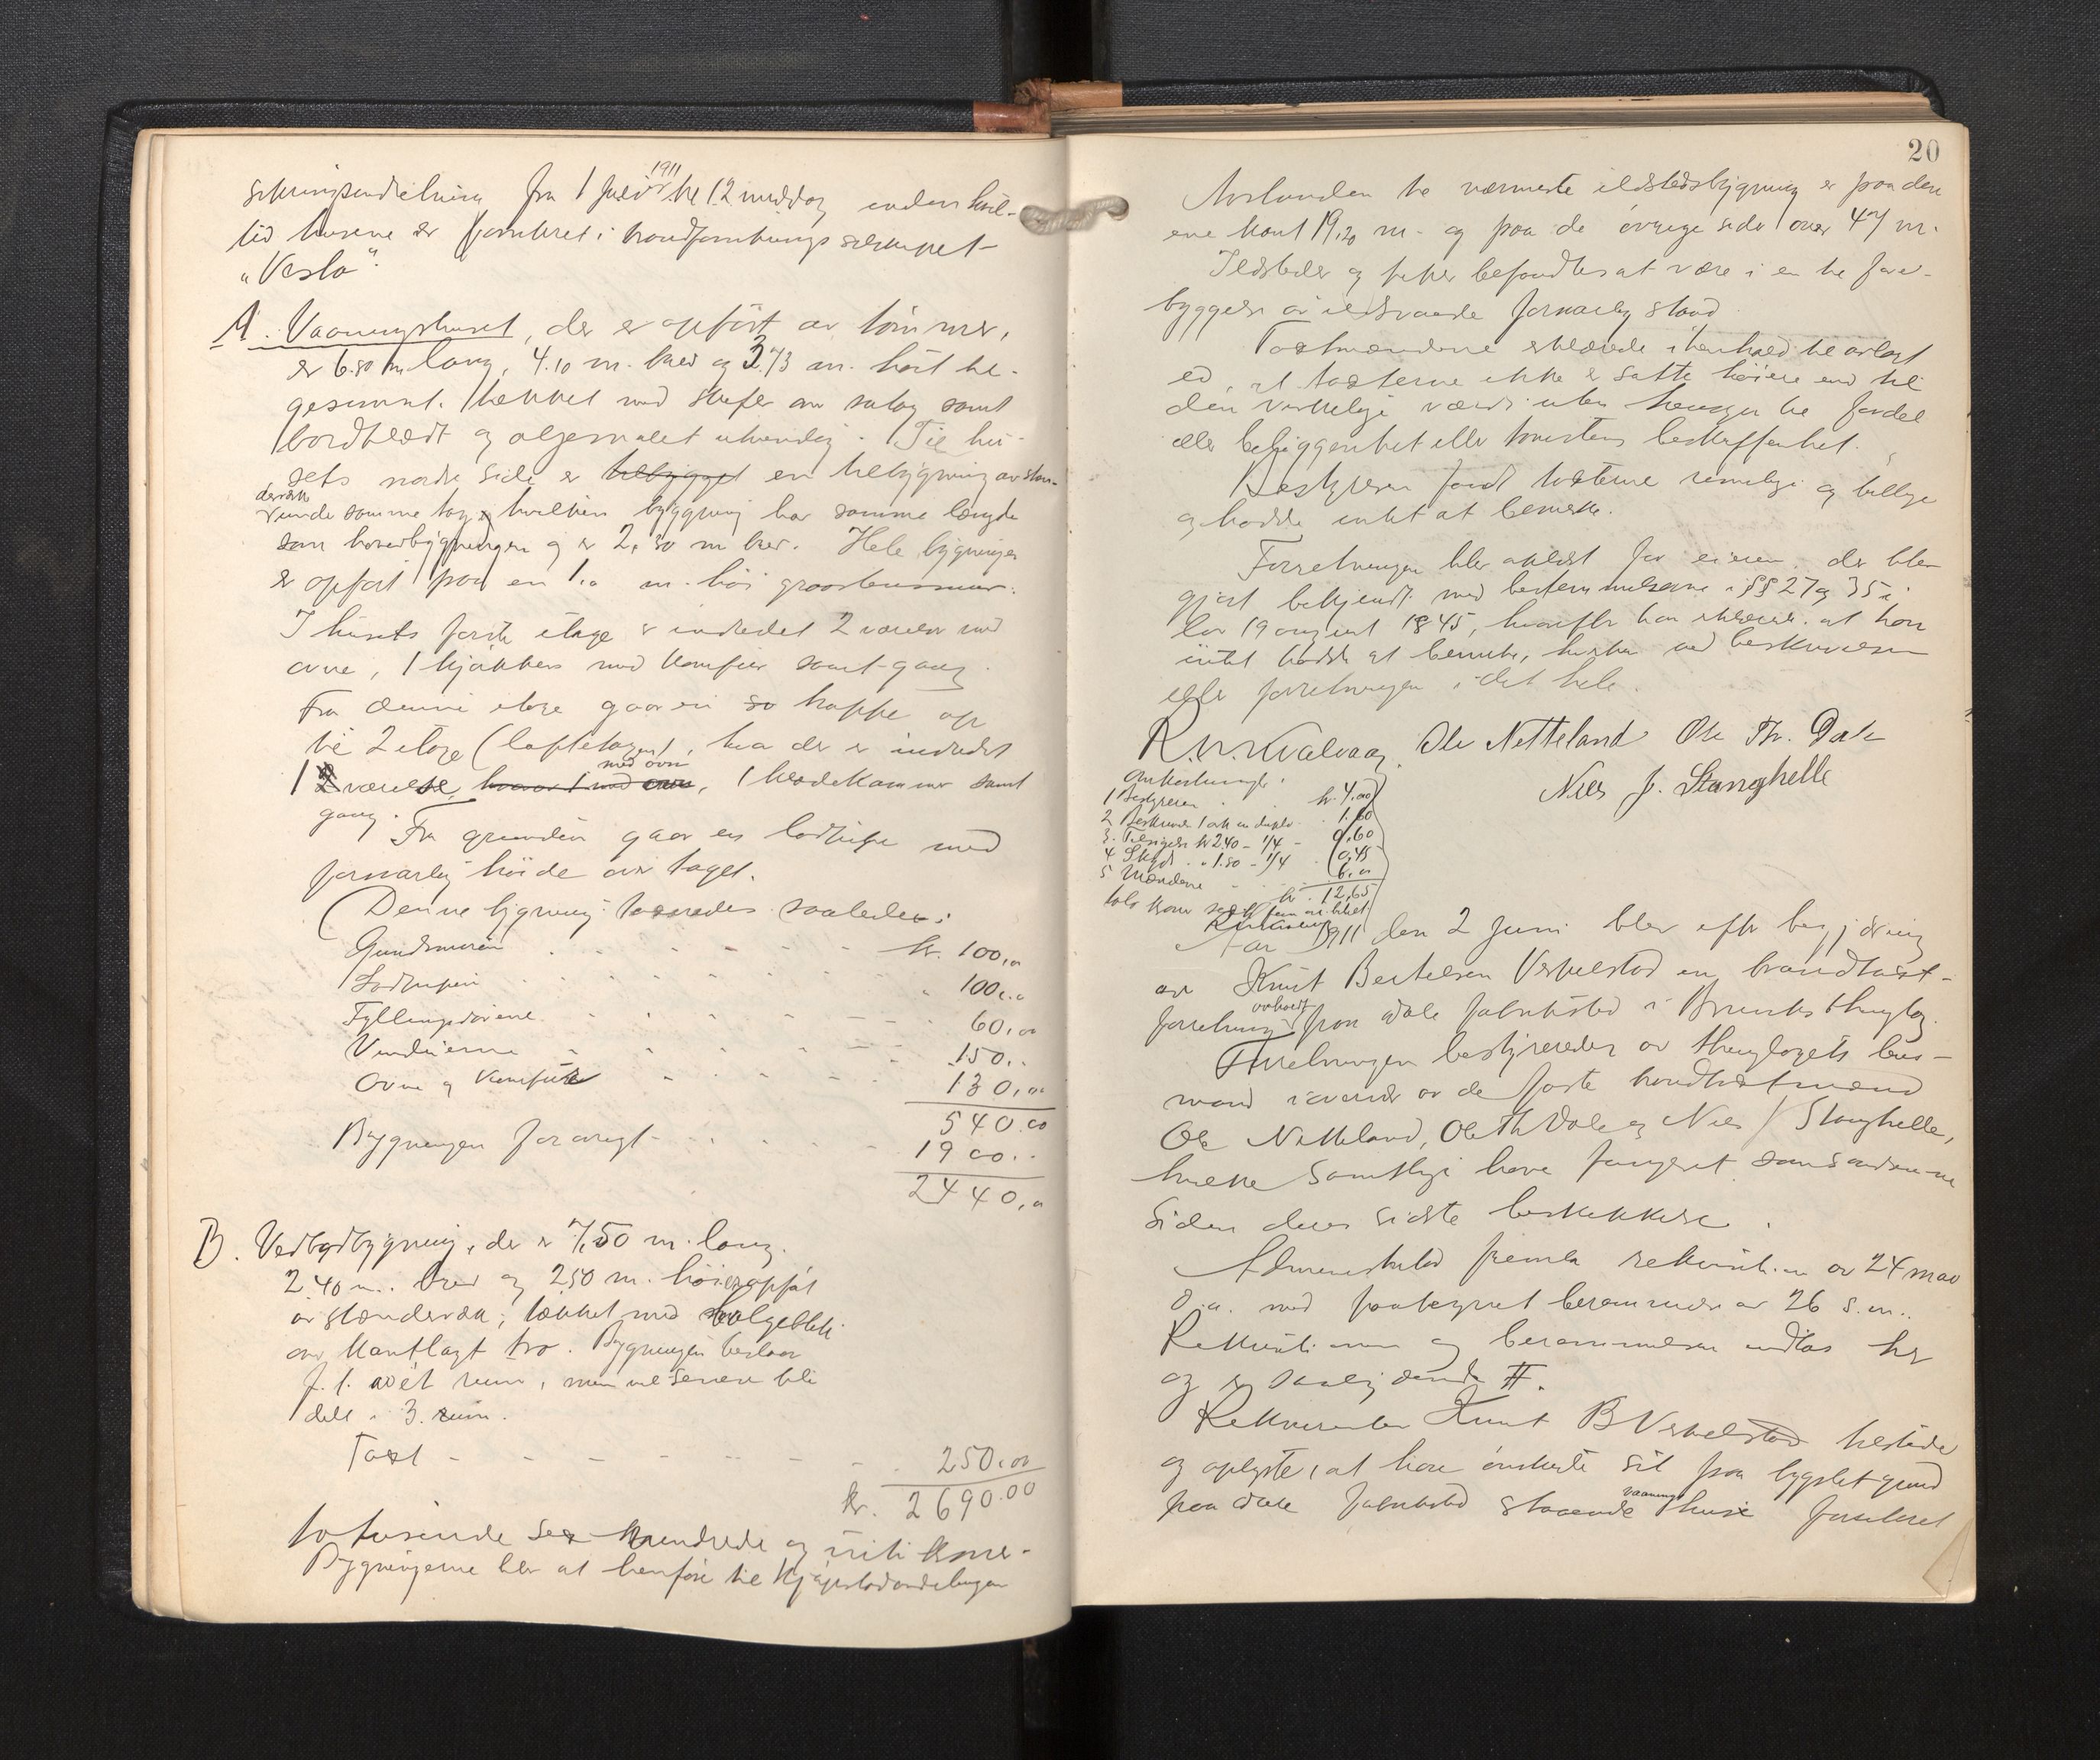 sikringsindretning fra 1 juli 1911 kl 12 middag inden hvil-
tid husene er forsikret i brandforsikringsselskapet
"Vesta".
A. Vaaningshuset, der er opført av tømmer,
er 6.80 m lang, 4.10 m. bred og 3.73 m. høit til
gesimst. Tækket med skifer om sutag samt
bordklædt og oljemalet utvendig. Til hu-
sets nordre side er tilbygget en tilbygning av sten-
derverk
under samme tag, hvilken bygning har samme længde
som hovedbygningen og er 2,30 m bred. Hele bygningen
er opført paa en 1.0 m. høi graastensmur.
I husets første etage er indredet 2 værelser med
ovne, 1 kjøkken med komfur samt gang.
Fra denne etage gaar en trappe op
til 2 etage (loftetagen), hvor der er indredet
med ovn
1 værelse, hvorav 1 med ovn, 1 klædekammer samt
gang.
Fra grunden gaar en lodpipe med
forsvarlig høide over taget.
Denne bygning taxeredes saaledes:
Grundmuren kr. 100,00
Lodpipen 100,00
Fyllingsdørene 60,00
Vinduerne 150,00
Ovne og komfur 130,00
540.00
Bygningen forøvrigt 1900..
2440,00
B. Vedbodbygning, der er 7,50 m. lang.
2.40 m. bred og 2.50 m. høi er opført
av stænderverk, tækket med bølgeblik
om kantlagt tro. Bygningen bestaar
f. t. av ét rum, men vil senere bli
delt i 3. rum.
Taxt 250,00
kr. 2690.00
totusinde sex hundrede og nitti kroner.
Bygningerne blev at henføre til kjøpstadavdelingen
20
Avstanden til nærmeste ildstedsbygning er paa den
ene kant 19,20 m. og paa de øvrige sider over 47 m.
Ildsteder og piper befandtes at være i en til fore-
byggelse av ildsvaade forsvarlig stand.
Taxtmændene erklærede i henhold til avlagt
ed, at taxterne ikke er satte høiere end til
den virkelige værdi uten hensyn til fordel
eller beliggenhet eller tomtens beskaffenhet.
Bestyreren fandt taxterne rimelige og billige
og hadde intet at bemerke.
Forretningen blev oplæst for eieren, der blev
gjort bekjendt med bestemmelserne i §§ 27 og 35 i
lov 19 august 1845, hvorefter han erklærede at han
intet hadde at bemerke, hverken ved beskrivelsen
eller forretningen i det hele.
R. N. Kvalvaag. Ole Netteland Ole Th. Dale
Nils J. Stanghelle
Omkostninger:
1 Bestyreren kr. 4,00
2 Beskrivn. 1 ark in duplo 1.60
3. Tilsigelse kr 2.40 - 1/4 - 0,60
4 Skyds " 1.80 - 1/4 0,45
5 Mændene 6,00
kr. 12,65
tolv kroner sexti fem øre. betalt
RNKvalvaag
Aar 1911 den 2 Juni blev efter begjæring
av Knut Bertelsen Verkelstad en brandtaxt-
avholdt
forretning paa Dale fabriksted i Bruviks thinglag.
Forretningen bestyrededes av thinglagets lens-
mand i overvær av de faste brandtaxtmænd
Ole Netteland, Ole Th Dale og Nils J Stanghelle,
hvilke samtlige have fungeret som saadanne
siden deres sidste beskikkelse.
Administrator fremla rekvisition av 24 mai
d. a. med paategnet berammelse av 26 s. m.
Rekvisitionen og berammelsen indtas her
og er saalydende #.
Rekvirenten Knut B Verkelstad tilstede
og oplyste, at have ønskede sit paa bygslet grund
vaanings
paa Dale fabriksted staaende hus forsikret